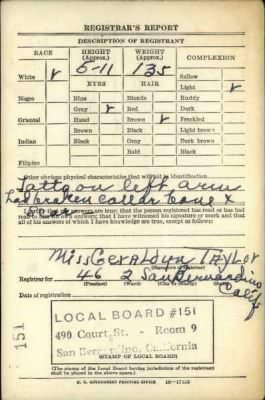 REGISTRAR'S REPORT
DESCRIPTION OF REGISTRANT
RACE HEIGHT (Approx.) WEIGHT (Approx.) COMPLEXION
5-11 135
White ✓ EYES HAIR Sallow
Light ✓
Negro Blue Blonde Ruddy
Gray ✓ Red Dark
Oriental Hazel Brown ✓ Freckled
Brown Black Light brown
Indian Black Gray Dark brown
Bald Black
Filipino
Other obvious physical characteristics that will aid in identification
Tattoo on left arm
Had broken collar bone &
are true; that the person registered has read or has had
read to him his own answers; that I have witnessed his signature or mark and that
all of his answers of which I have knowledge are true, except as follows:
Miss Geraldyn Taylor
(Signature of registrar)
Registrar for 46 2 San Bernardino
(Precinct) (Ward) (City or county)
Calif
Date of registration
LOCAL BOARD #151
490 Court St. - Room 9
San Bernardino, California
(STAMP OF LOCAL BOARD)
(The stamp of the Local Board having jurisdiction of the registrant
shall be placed in the above space)
U. S. GOVERNMENT PRINTING OFFICE
151